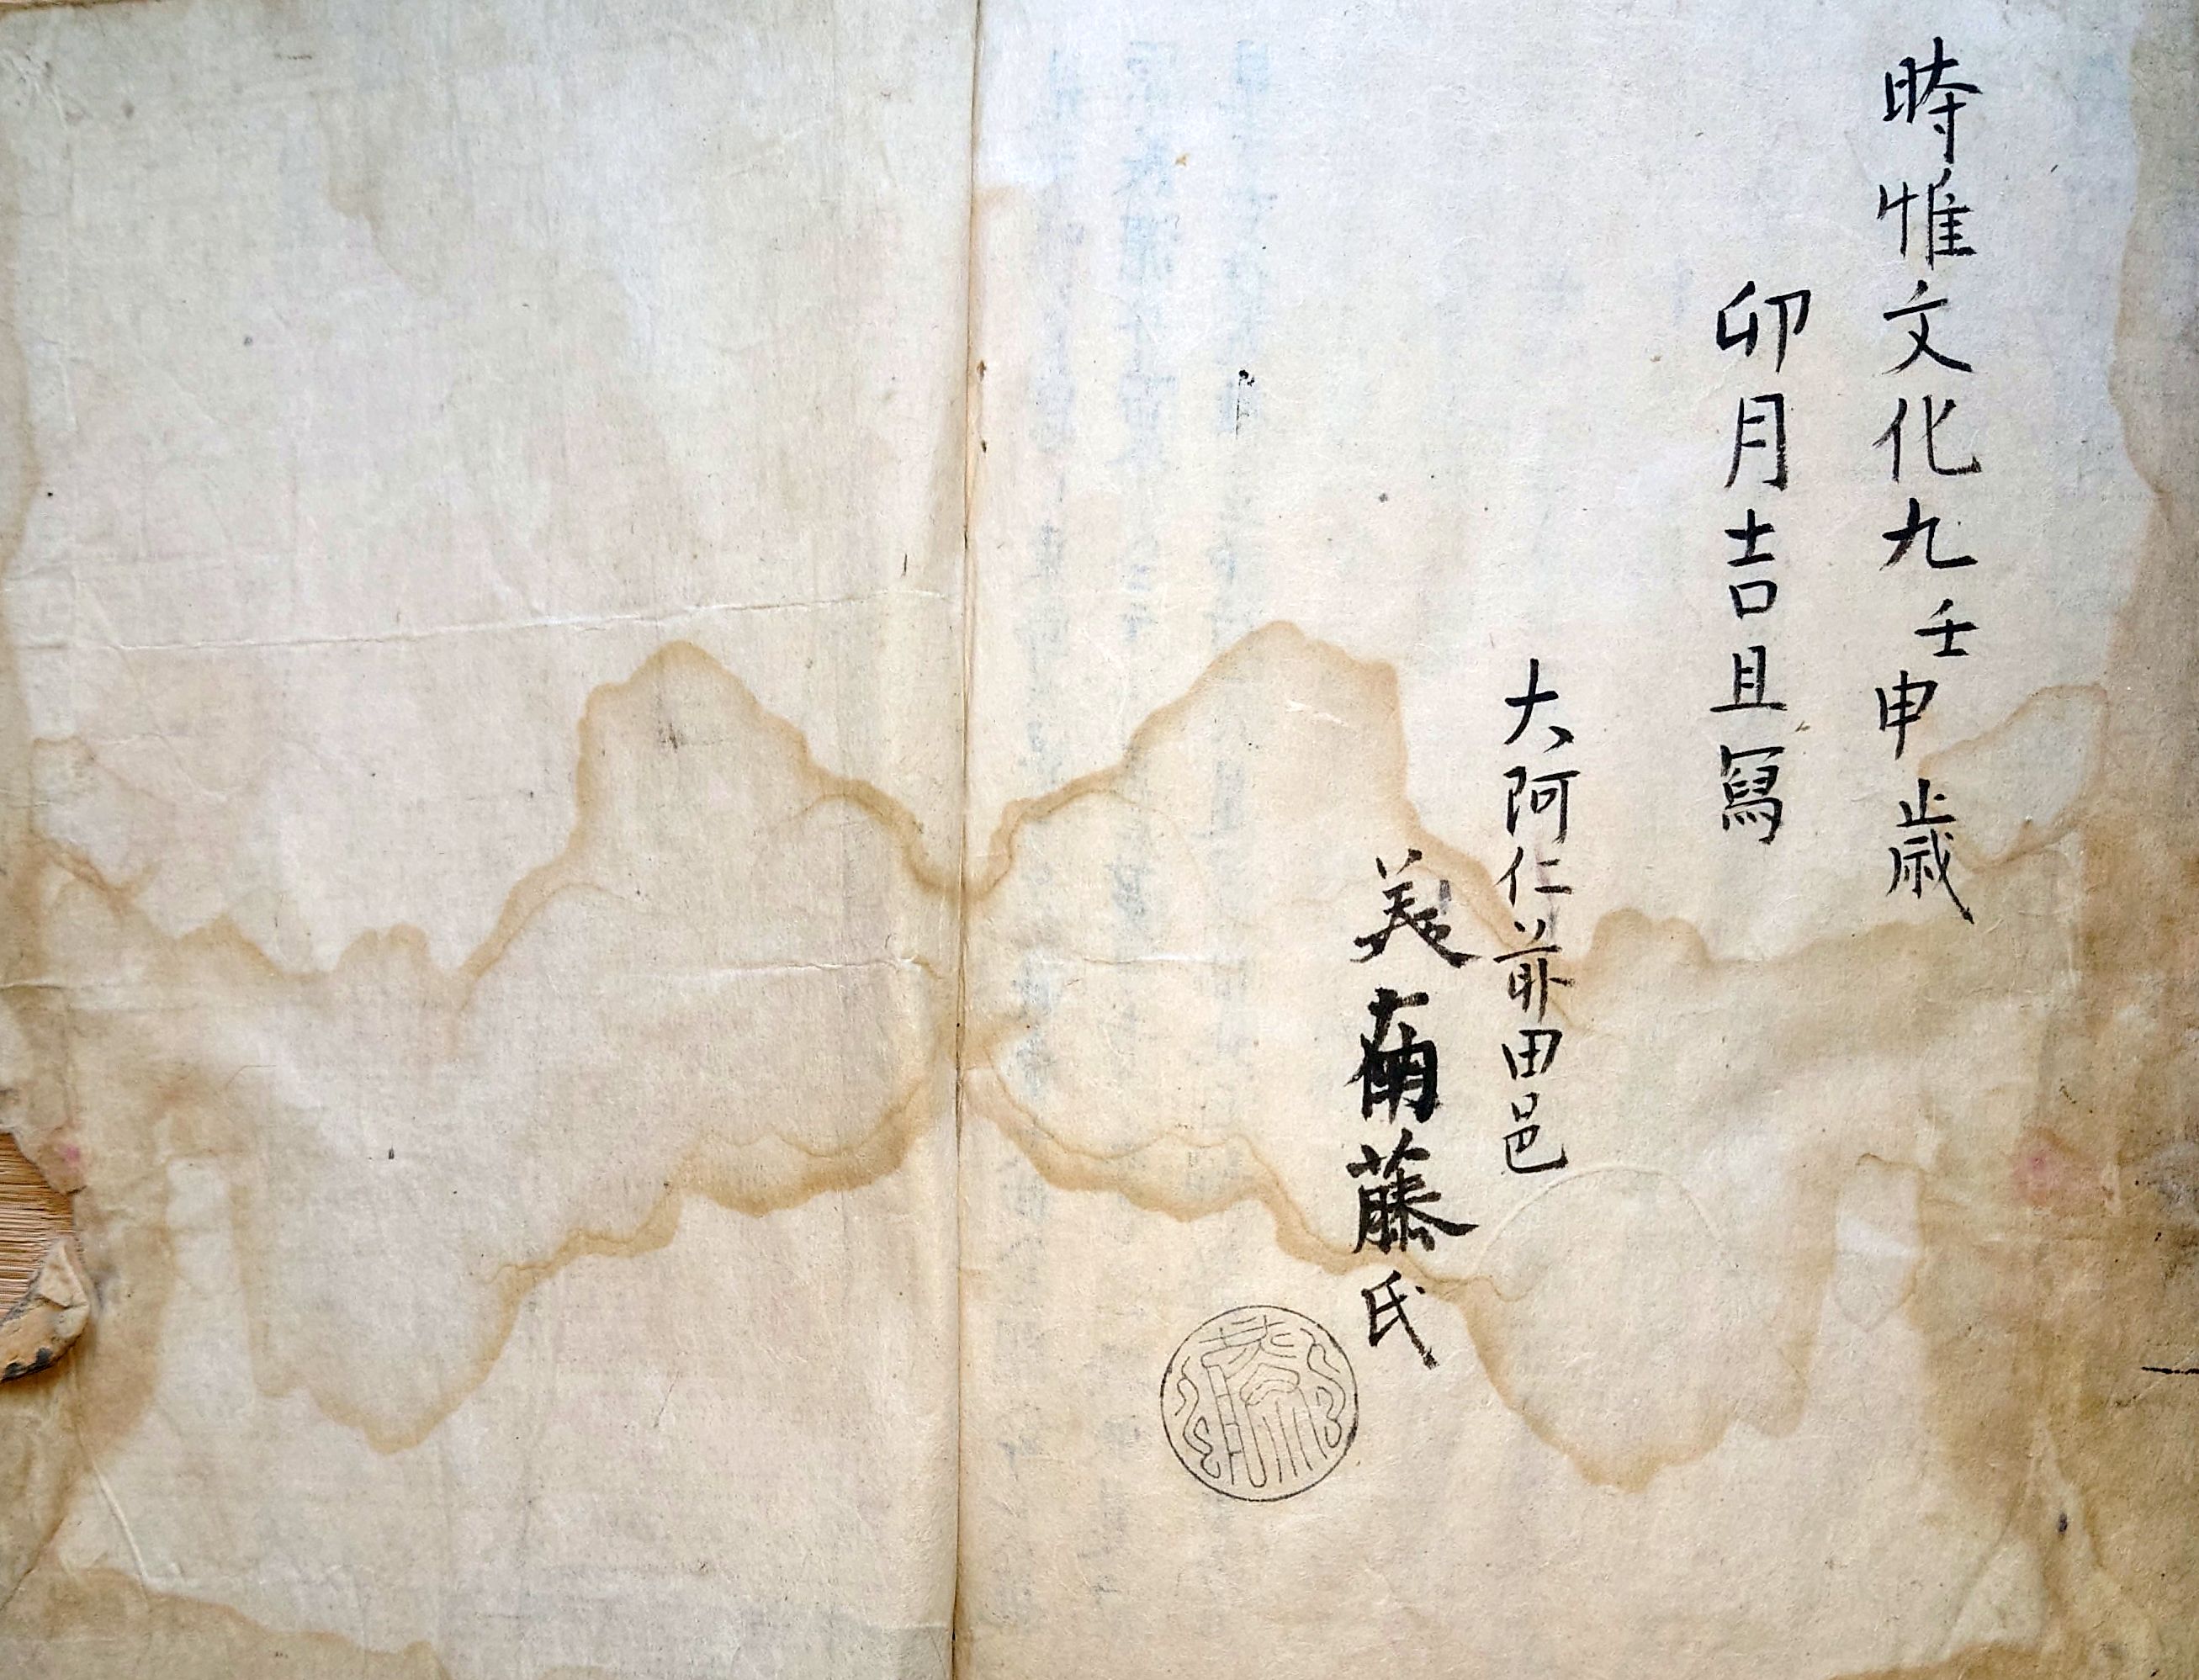 時惟文化九壬申歳
卯月吉且冩
大阿仁前田邑
藤氏